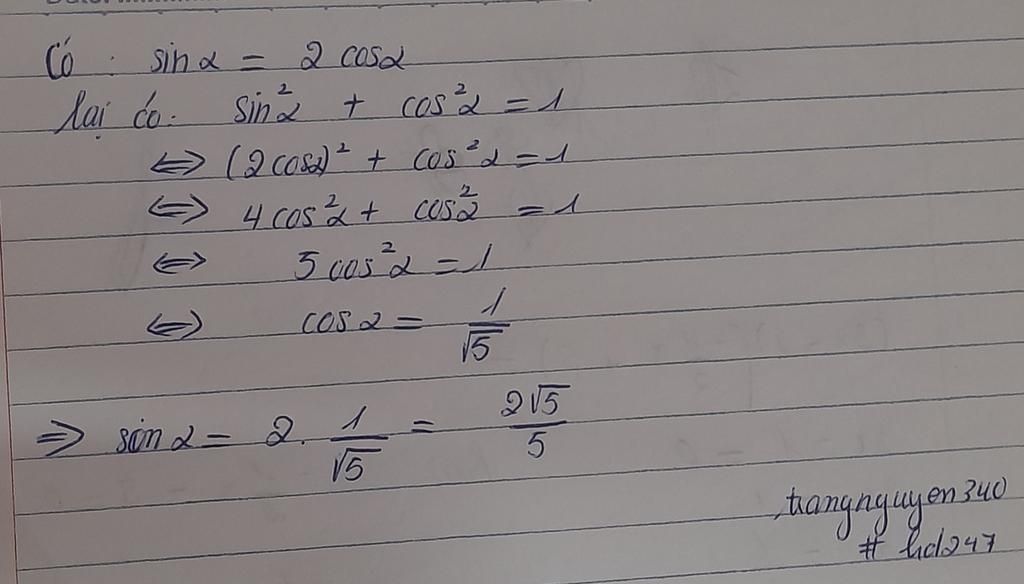 Có : sin α = 2 cos α
lại có: sin²α + cos²α = 1
⇔ (2cosα)² + cos²α = 1
⇔ 4cos²α + cos²α = 1
⇔ 5cos²α = 1
⇔ cos α = 1/√5
⇒ sin α = 2. 1/√5 = 2√5/5
trangnguyen340
# hd247